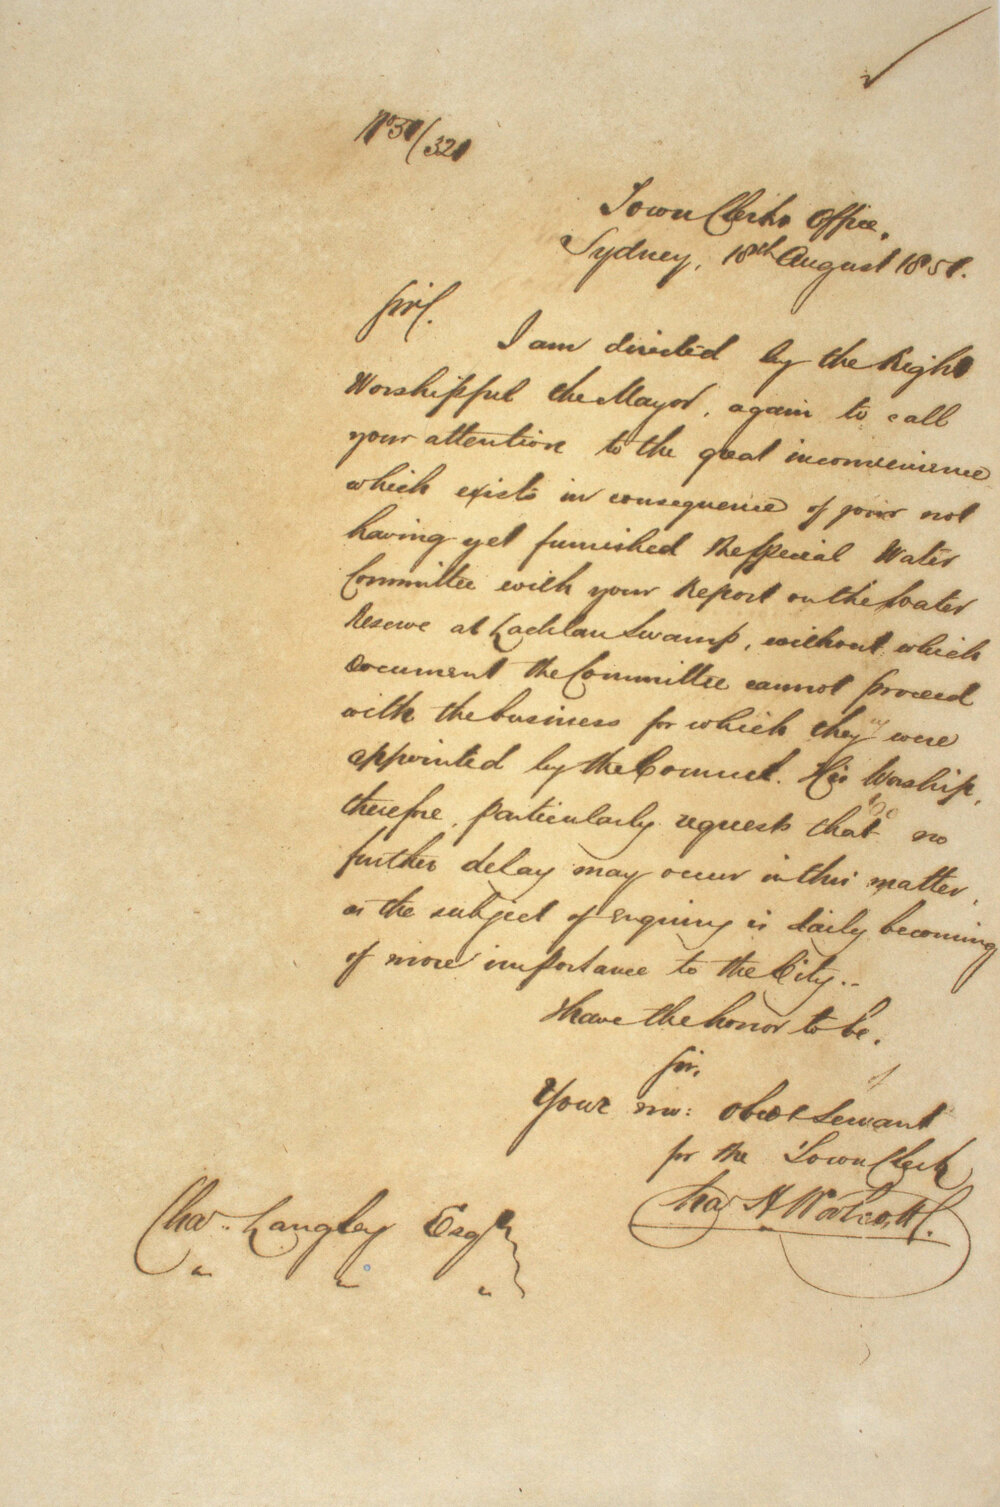 No 51/321
Town Clerks Office,
Sydney, 18th August 1851.
Sir,
I am directed by the Right
Worshipful the Mayor, again to call
your attention to the great inconvenience
which exists in consequence of your not
having yet furnished the Special Water
Committee with your Report on the Water
Reserve at Lachlan Swamp, without which
document the Committee cannot proceed
with the business for which they were
appointed by the Council. His Worship,
therefore, particularly requests that no
further delay may occur in this matter,
as the subject of enquiry is daily becoming
of more importance to the City..
I have the honor to be,
Sir,
Your mo: obedt Servant
for the Town Clerk
Chas H Woolcott.
Chas. Langley Esqr